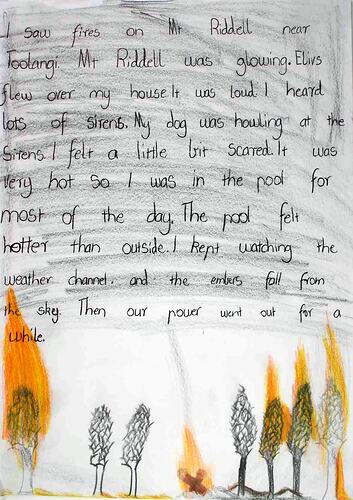 I saw fires on Mt Riddell near
Toolangi. Mt Riddell was glowing. Elivs
flew over my house It was loud I heard
lots of sirens. My dog was howling at the
sirens. I felt a little bit scared. It was
very hot so I was in the pool for
most of the day. The pool felt
hotter than outside. I kept watching the
weather channel. and the embers fall from
the sky. Then our power went out for a
while.